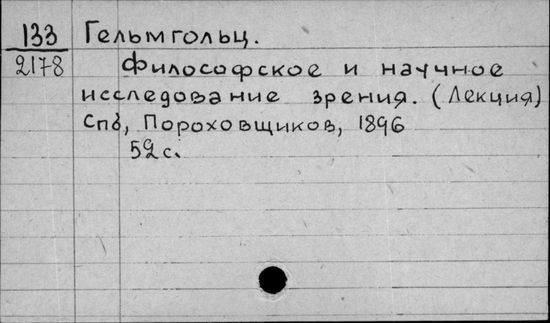 133 Гельмгольц.
2178 Философское и научное
исследование зрения. (Лекция)
Спб, Пороховщиков, 1896
52 с.